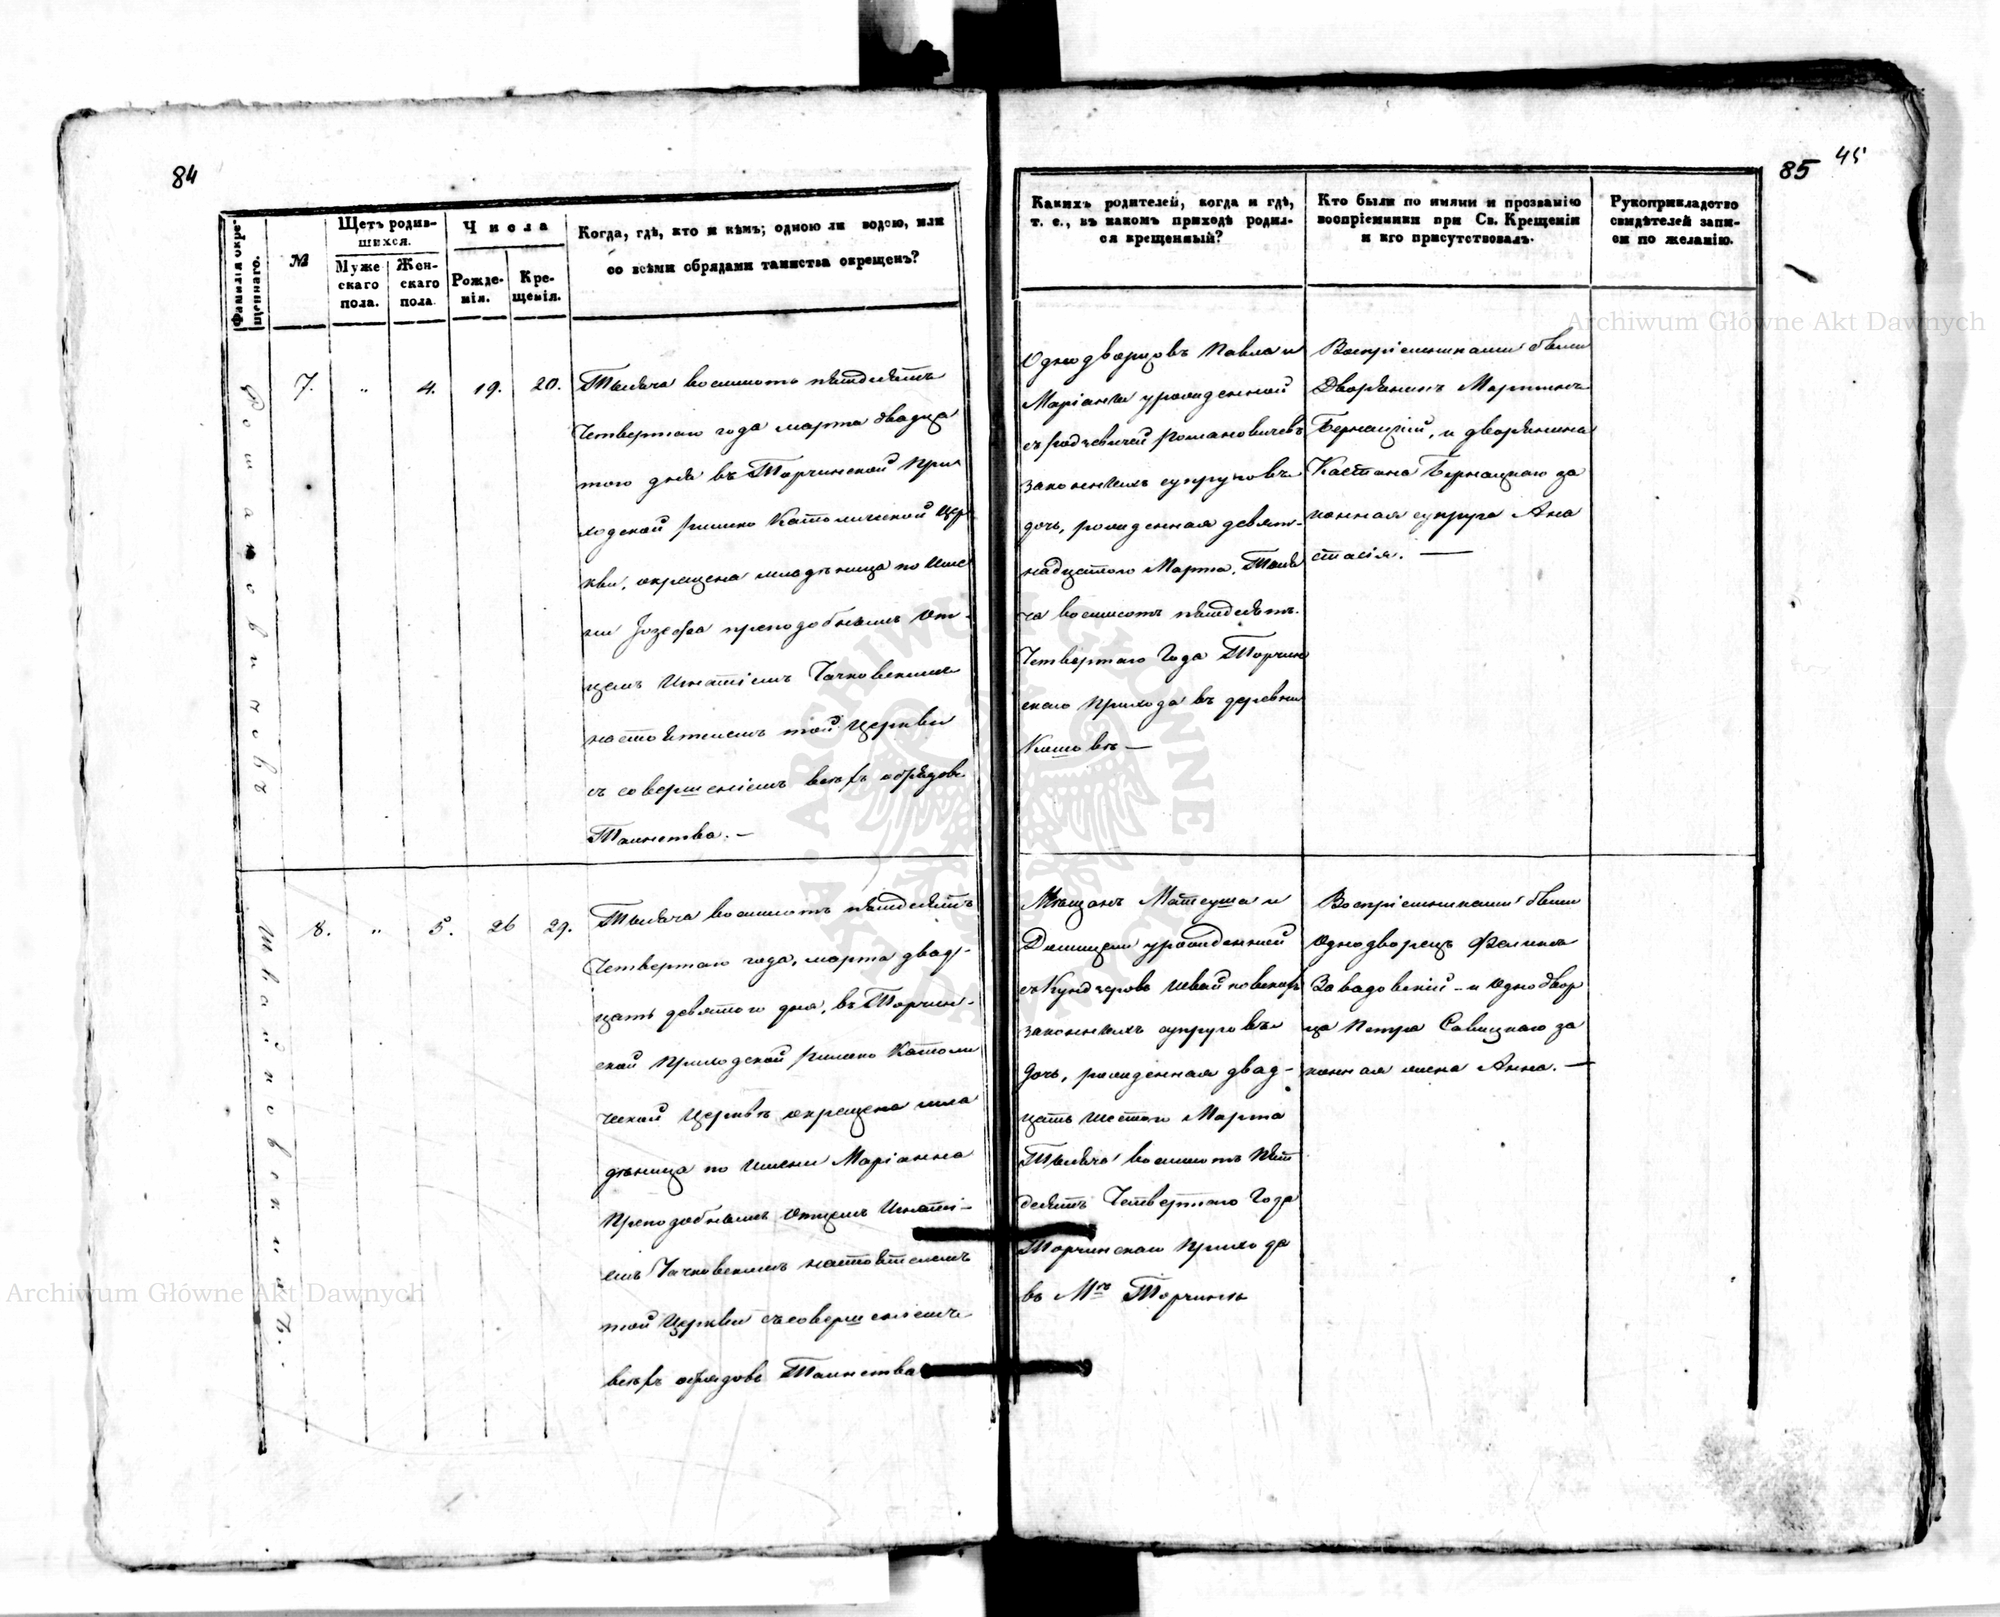 84
85 45
Фамилія окре-
щеннаго.
№
Щетъ родив-
шихся.
Муже
скаго
пола.
Жен-
скаго
пола
Числа
Рожде-
нія.
Кре-
щенія.
Когда, гдѣ, кто и кѣмъ; одною ли водою, или
со всѣми обрядами таинства окрещенъ?
Какихъ родителей, когда и гдѣ,
т. е., въ какомъ приходѣ родил-
ся крещенный?
Кто были по имяни и прозванію
воспріемники при Св. Крещеніи
и кто присутствовалъ.
Рукоприкладство
свидѣтелей запи-
си по желанію.
Романовичовъ
7. " 4. 19. 20.
Тысяча восемьсотъ пятьдесятъ
Четвертаго года марта двадца
таго дня въ Торчинской При
ходской римско Католической Цер
кви, окрещена младѣница по Име
ни Јозефа преподобнымъ От-
цемъ Игнатіемъ Чачковскимъ
настоятелемъ той Церкви
съ совершеніемъ всѣхъ обрядовъ
Таинства. —
Однодворцовъ Павла и
Маріанны урожденной
съ Романовичовъ
законныхъ супруговъ
дочь, рожденная девят-
надцатого Марта, Тыся
ча восемьсотъ пятьдесятъ
Четвертаго Года Торчин
скаго Прихода въ деревни
—
Воспріемниками были
Дворянинъ Мартинъ
Бернацкій, и дворянина
Каетана Бернацкаго за
конная супруга Ана
стасія. —
Швайковскихъ.
8. " 5. 26 29.
Тысяча восемьсотъ пятьдесятъ
Четвертаго года, марта двад-
цать девятого дня, въ Торчин-
ской Приходской римско Католи
ческой Церквѣ окрещена мла
дѣница по имени Маріанна
Преподобнымъ Отцемъ Игнаті-
емъ Чачковскимъ настоятелемъ
той Церкви съ совершеніемъ
всѣхъ обрядовъ Таинства
Мѣщанъ Матеуша и
Доминцели урожденной
съ Кундзеровъ Швайковскихъ
законныхъ супруговъ
дочь, рожденная двад-
цать шестого Марта
Тысяча восемьсотъ пять
десятъ Четвертаго Года
Торчинскаго Прихода
въ Мѣ Торчинѣ
Воспріемниками были
Однодворецъ Феликсъ
Завадовскій – и Однодвор
ца Петра Савицкаго за
конная жена Анна. —
Archiwum Główne Akt Dawnych
Archiwum Główne Akt Dawnych
ARCHIWUM GŁÓWNE AKT DAWNYCH